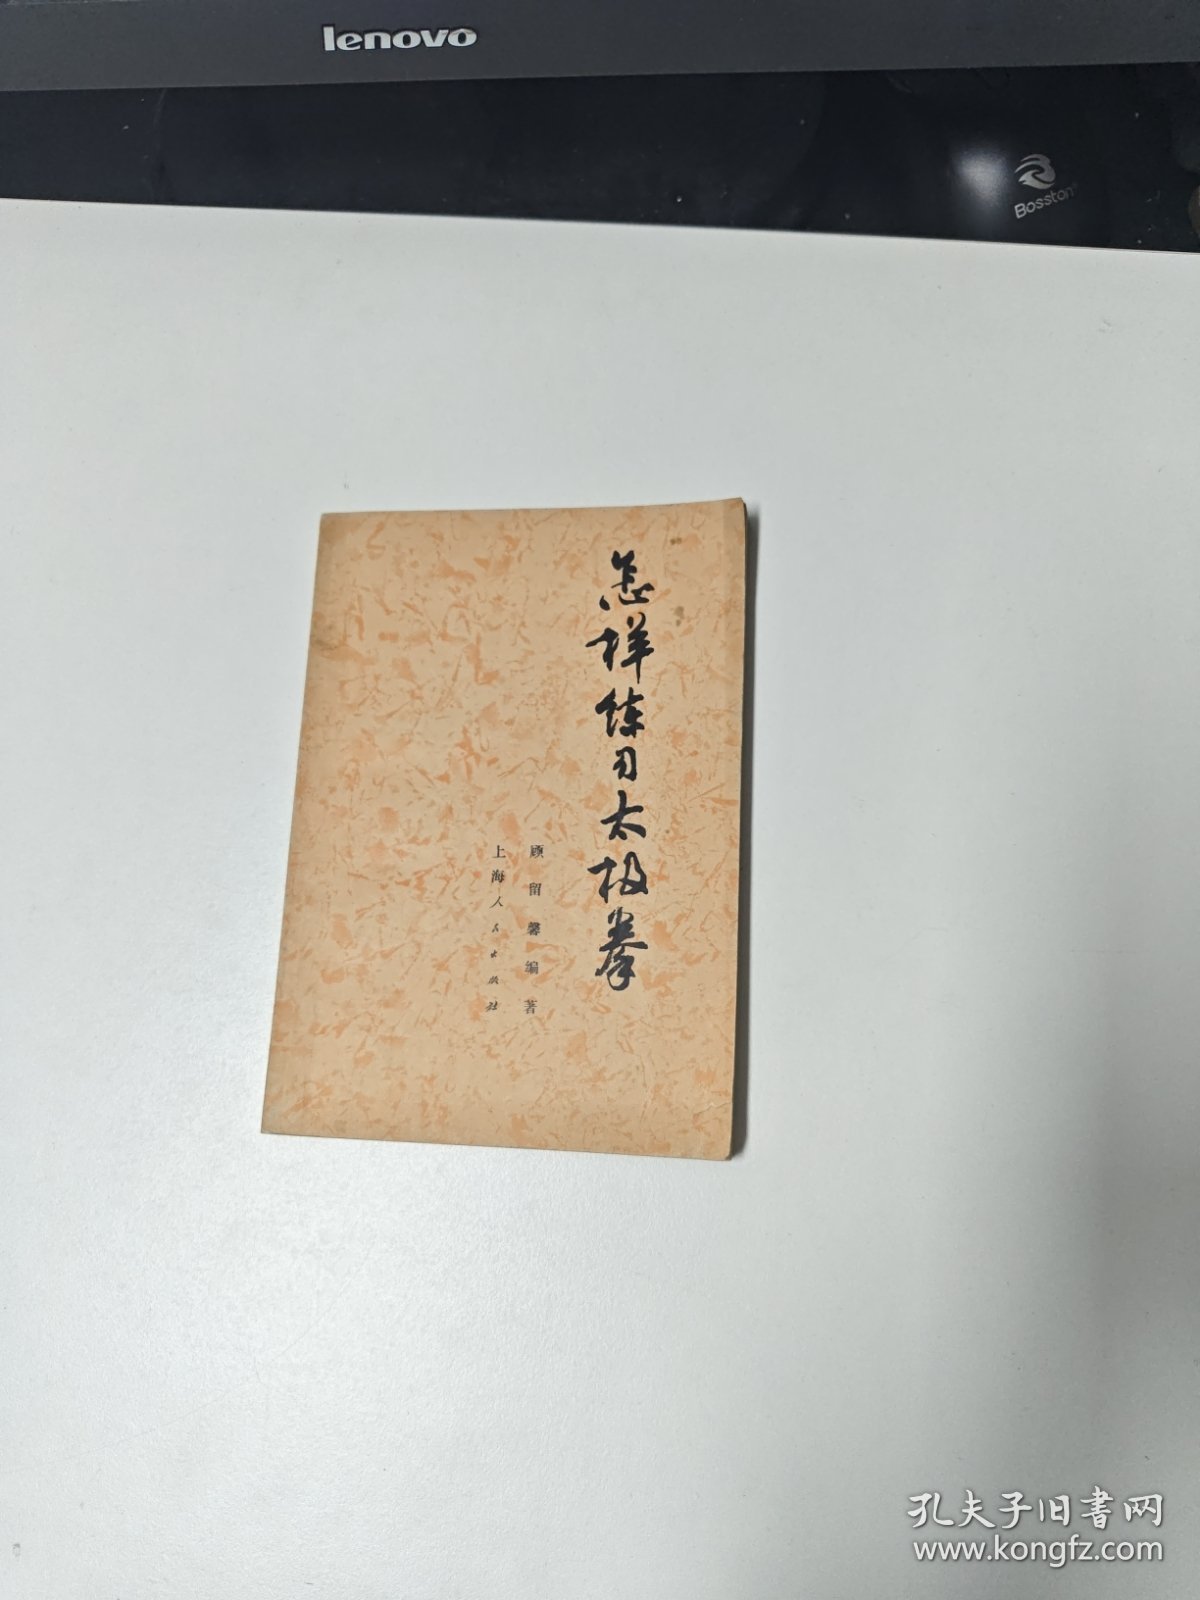 lenovo
Bosston
怎样练习太极拳
顾留馨编著
上海人民出版社
孔夫子旧书网
www.kongfz.com